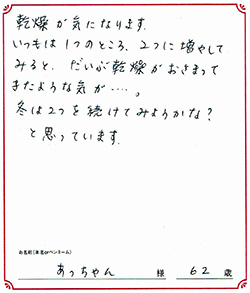 乾燥が気になります.
いつもは1つのところ、2つに増やして
みると、だいぶ乾燥がおさまって
きたような気が……。
冬は2つを続けてみようかな？
と思っています.
お名前(本名orペンネーム)
あっちゃん 様 62 歳